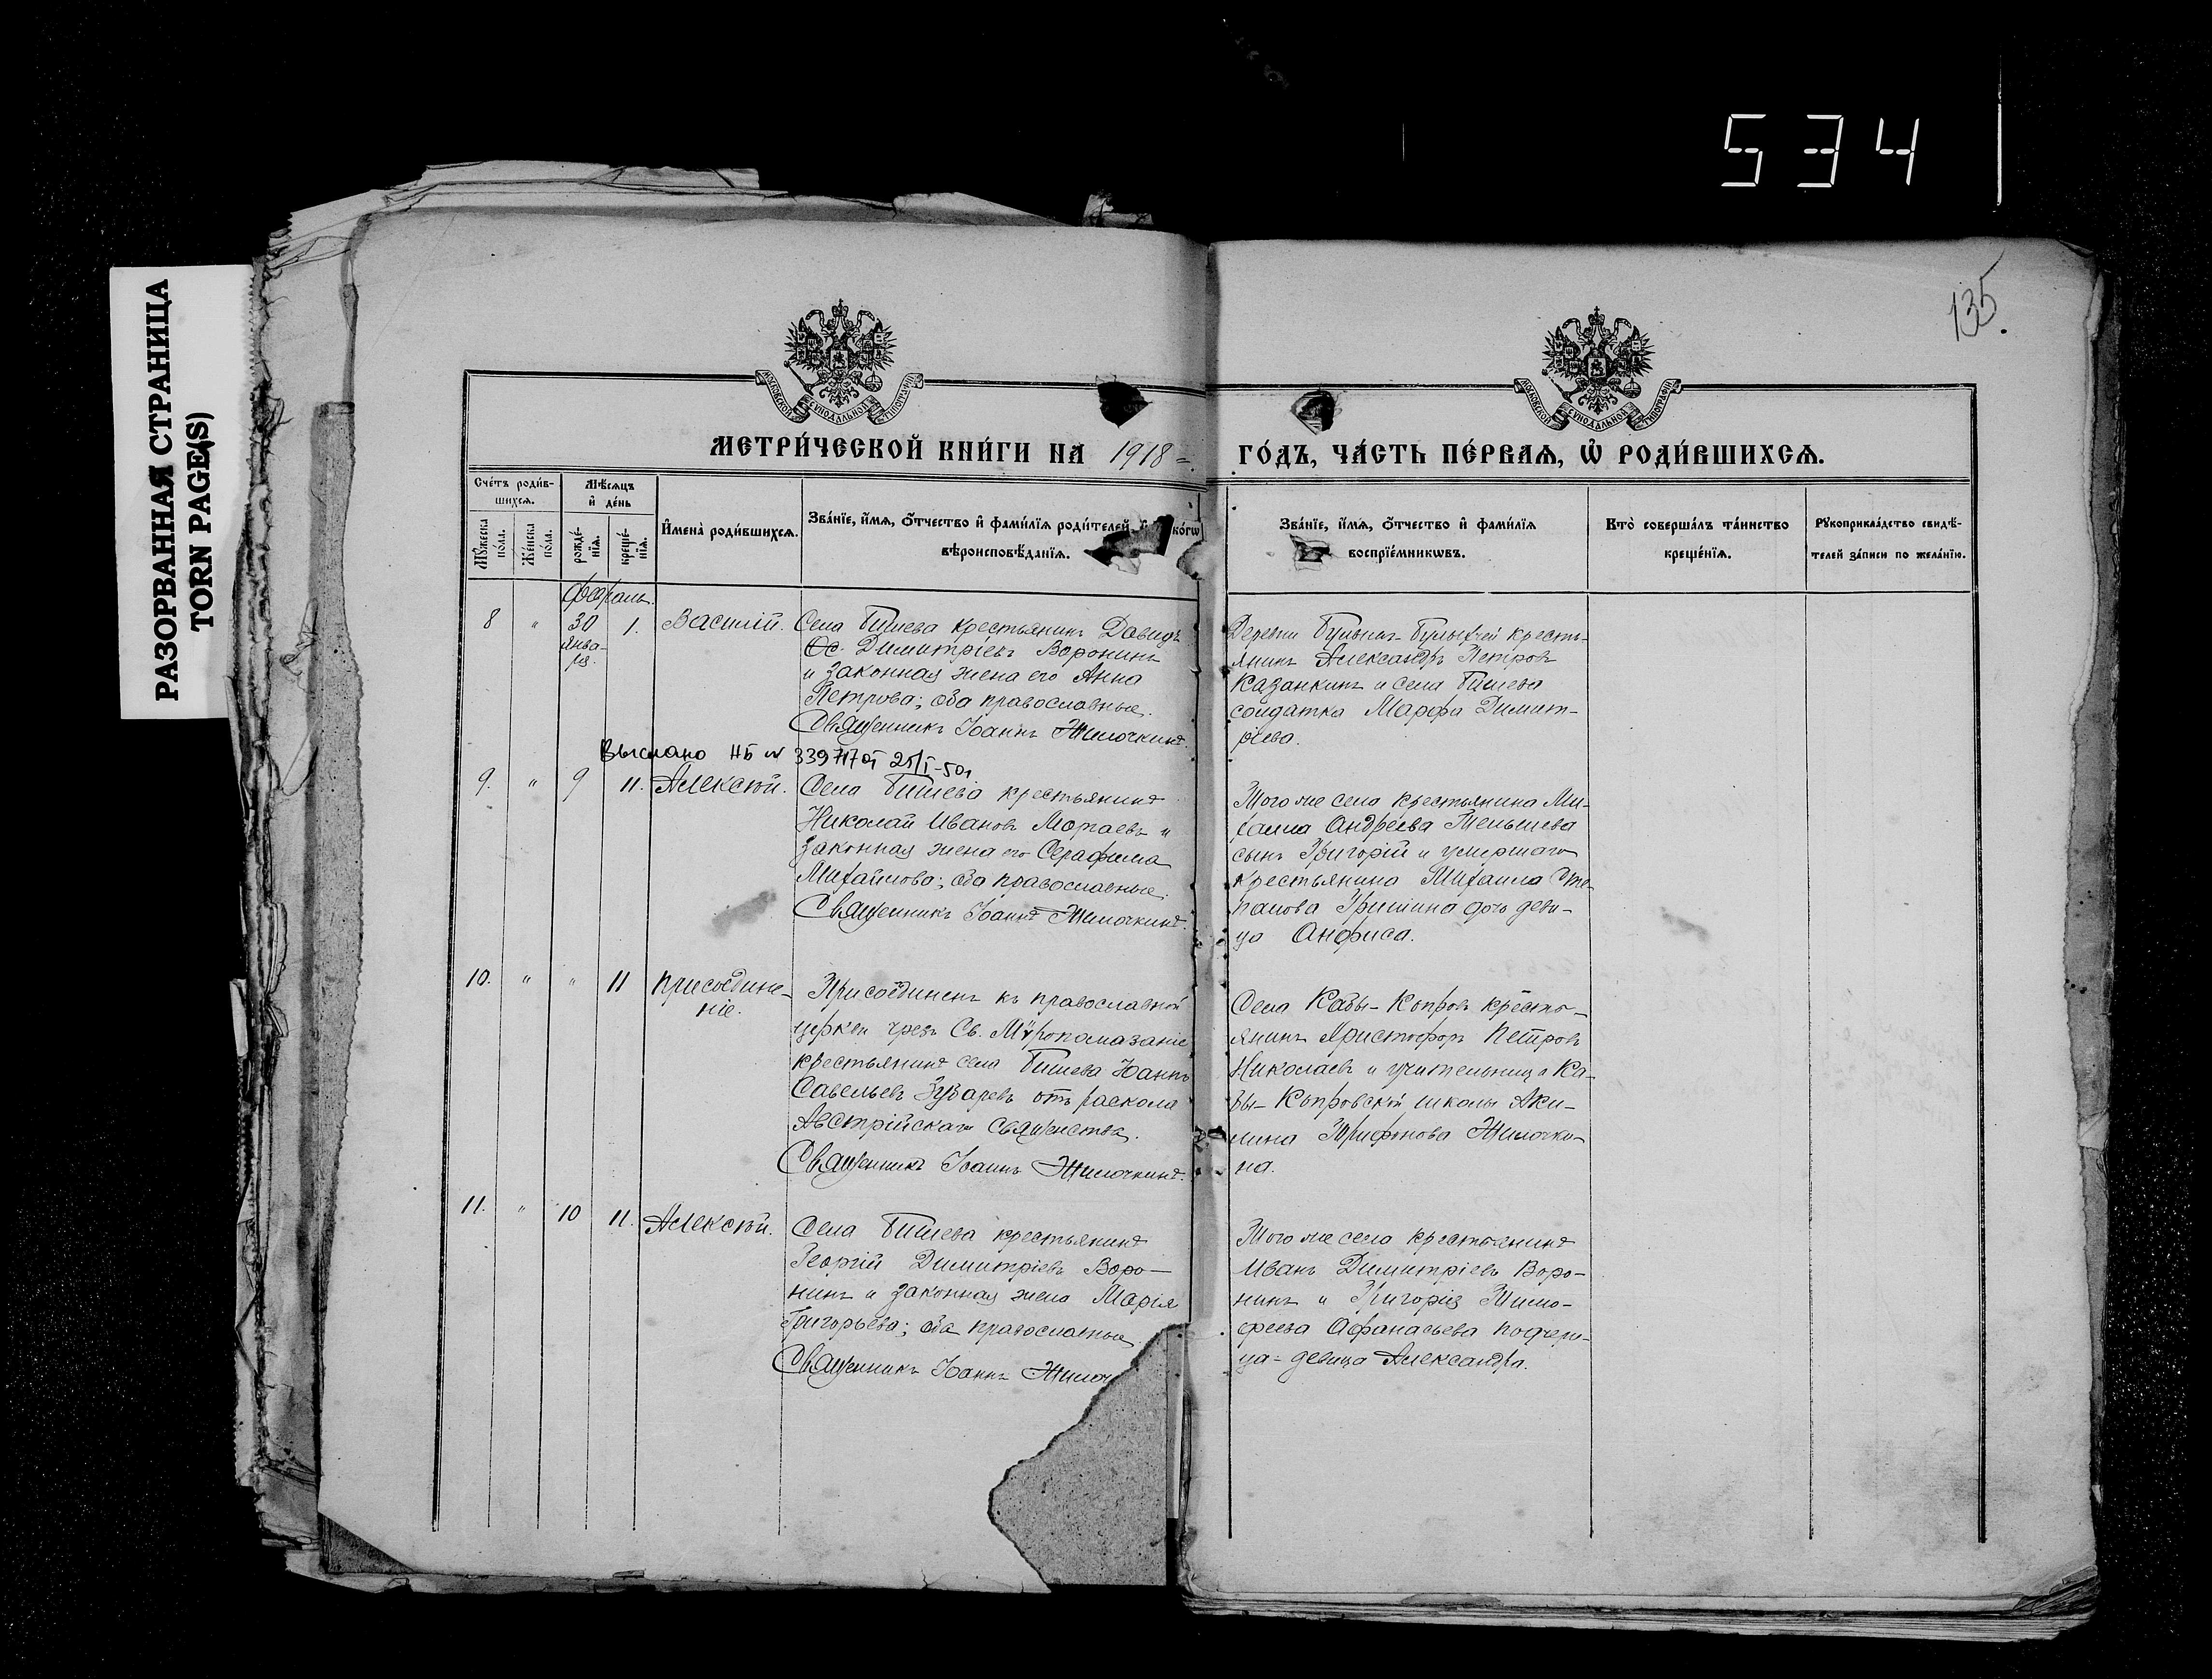 534
РАЗОРВАННАЯ СТРАНИЦА
TORN PAGE(S)
135.
МОСКОВСКОЙ СѴНОДАЛЬНОЙ ТИПОГРАФІИ
МОСКОВСКОЙ СѴНОДАЛЬНОЙ ТИПОГРАФІИ
МЕТРИ́ЧЕСКОЙ КНИ́ГИ НА 1918 =
ГО́ДЪ, ЧА́СТЬ ПЕ́РВАѦ, Ѽ РОДИ́ВШИХСѦ.
Сче́тъ роди́в-
шихсѧ.
Мѣ́сѧцъ
и҆ де́нь
Мꙋ́жеска
по́ла.
Же́нска
по́ла.
рожде́-
нїѧ.
креще́-
нїѧ.
И҆мена̀ роди́вшихсѧ.
Зва́нїе, и҆́мѧ, ѻ҆́тчество и҆ фами́лїѧ роди́телей, и҆ ко́гѡ
вѣроисповѣ́данїѧ.
Зва́нїе, и҆́мѧ, ѻ҆́тчество и҆ фами́лїѧ
воспрїе́мникѡвъ.
Кто̀ соверша́лъ та́инство
креще́нїѧ.
Рꙋкоприкла́дство свидѣ́-
телей за́писи по жела́нїю.
Февраль.
8 " 30 1. Василій. Села Бишева крестьянинъ Давидъ
Янва-
ря.
Ос. Димитріевъ Воронинъ
и законная жена его Анна
Петрова; оба православные.
Священникъ Іоаннъ Жилочкинъ.
Деревни крестья-
янинъ Александръ Петровъ
Казанкинъ и села Бишева
солдатка Марфа Димит-
ріева.
Выслано НБ № 25/I-50г
9. " 9 11. Алексѣй. Села Бишева крестьянинъ
Николай Ивановъ Моргаевъ и
законная жена его Серафима
Михайлова; оба православные.
Священникъ Іоаннъ Жилочкинъ.
Того же села крестьянина Ми-
хаила Андреева Теньшева
сынъ Григорій и умершаго
крестьянина Михаила Сте-
панова Гришина дочь деви-
ца Анфиса.
10. " " 11 Присоедине-
ніе.
Присоединенъ къ православной
церкви чрезъ Св. Мѵропомазаніе
крестьянинъ села Бишева Іоаннъ
Савельевъ Зубаревъ отъ раскола
Австрійскаго священства.
Священникъ Іоаннъ Жилочкинъ.
Села Кабы-Копровъ кресть-
янинъ Христофоръ Петровъ
Николаевъ и учительница Ка-
бы-Копровской школы Аки-
лина Трифонова Жилочки-
на.
11. " 10 11. Алексѣй. Села Бишева крестьянинъ
Георгій Димитріевъ Воро-
нинъ и законная жена Марія
Григорьева; оба православные.
Священникъ Іоаннъ Жилоч
Того же села крестьянинъ
Иванъ Димитріевъ Воро-
нинъ и Григорія Тимо-
феева Афанасьева падчери-
ца-девица Александра.